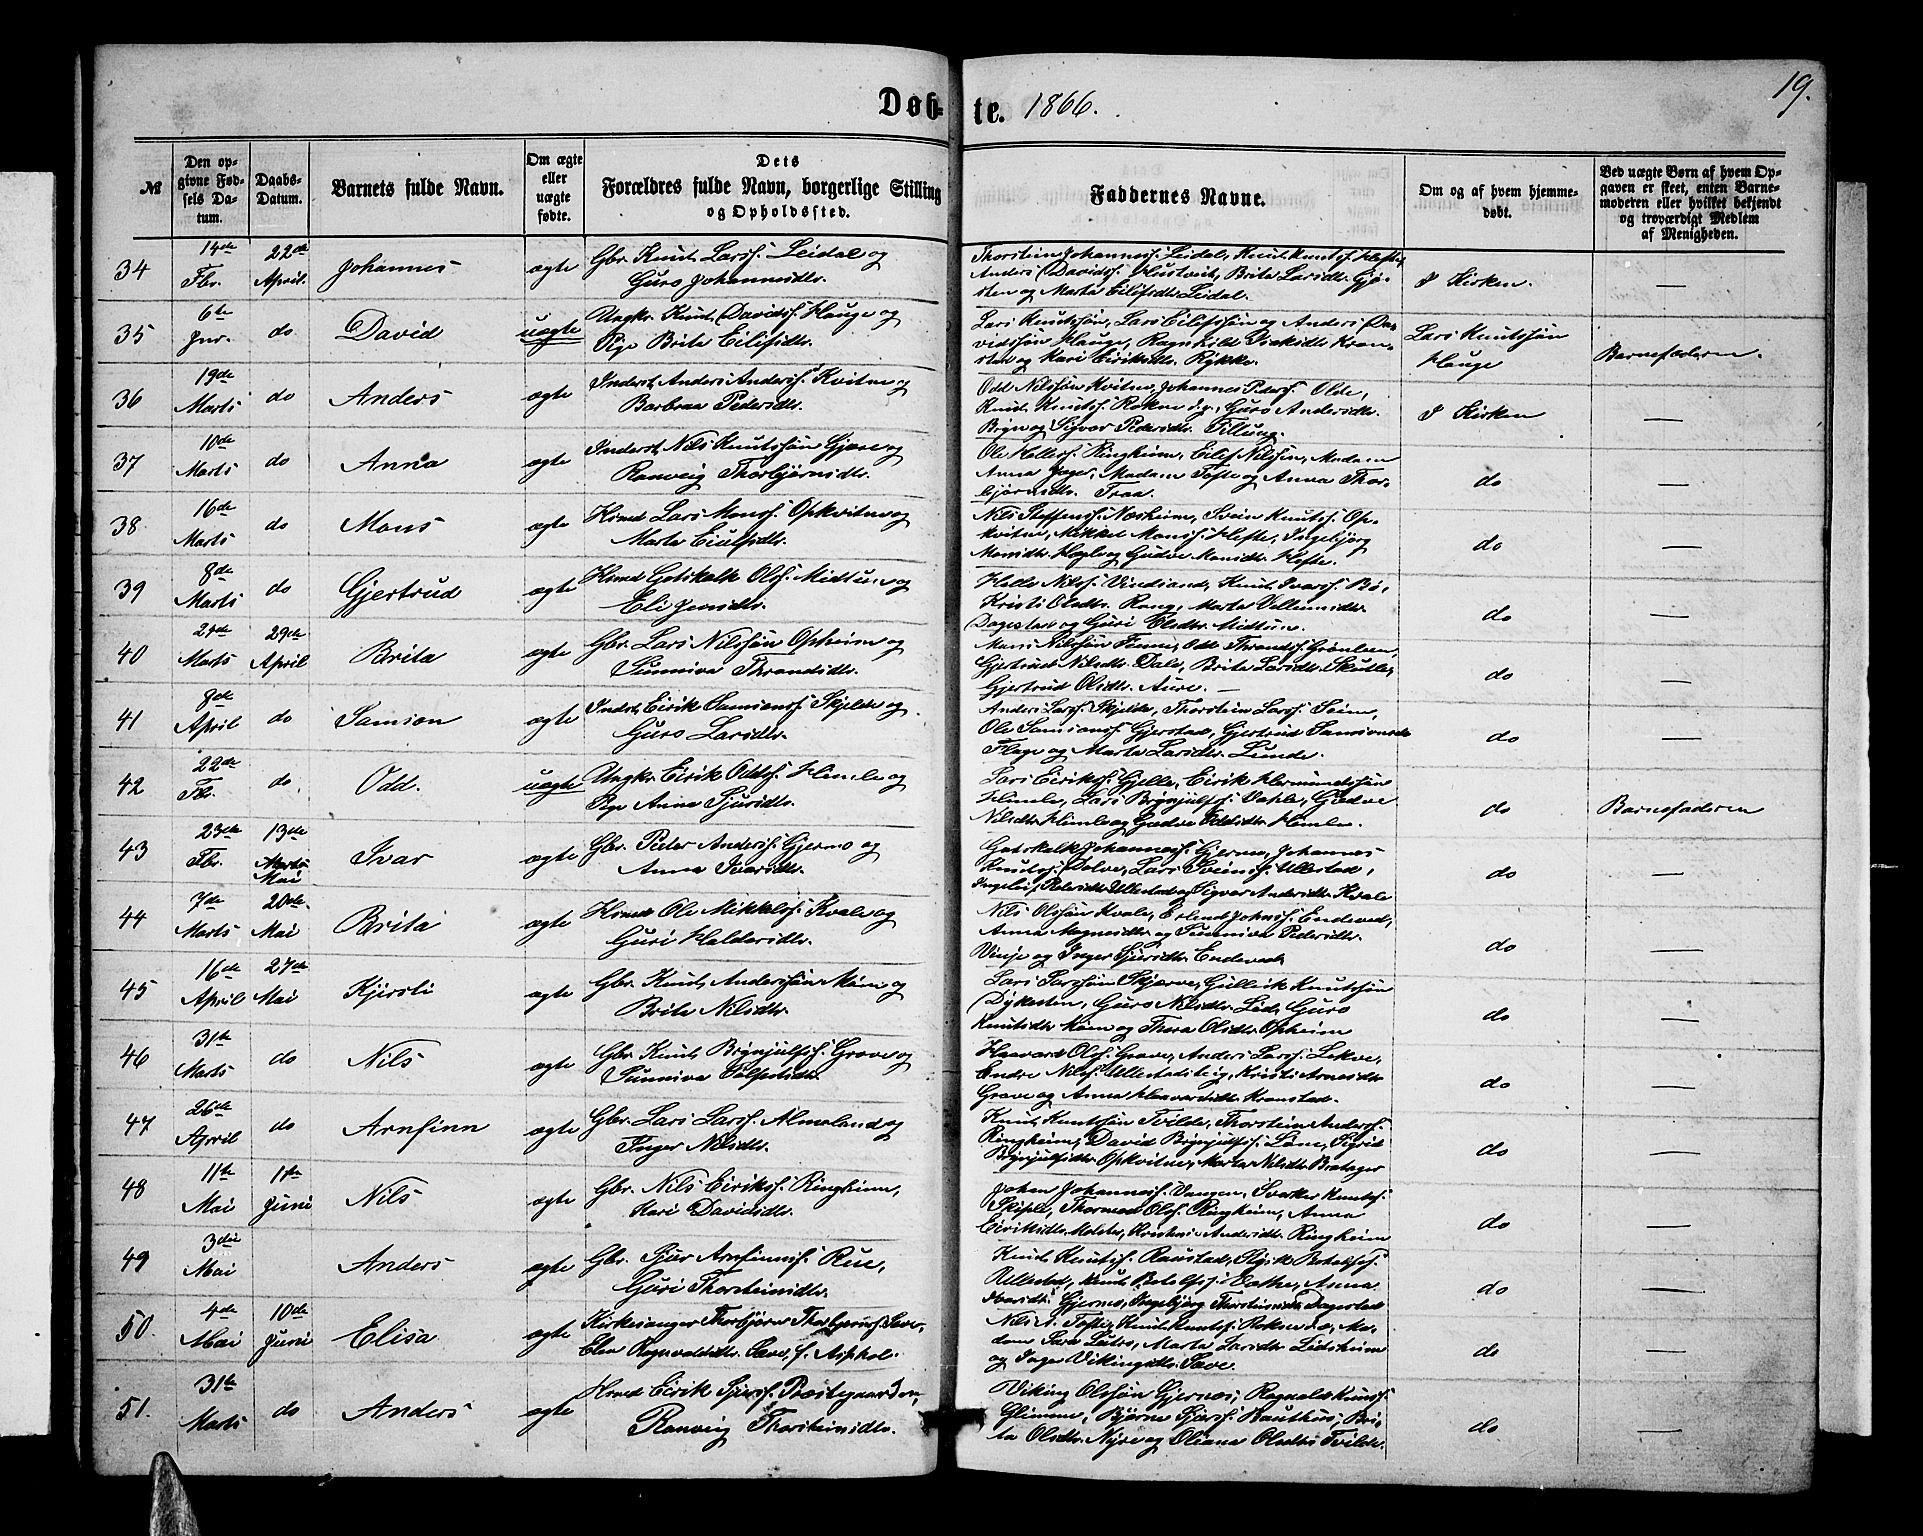 Døb-te. 1866.
19.
№
Den opgivne Fødsels Datum.
Daabs-Datum.
Barnets fulde Navn.
Om ægte eller uægte fødte.
Dets Forældres fulde Navn, borgerlige Stilling og Opholdssted.
Faddernes Navne.
Om og af hvem hjemmedøbt.
Ved uægte Børn af hvem Opgaven er skeet, enten Barnemoderen eller hvilket bekjendt og troværdigt Medlem af Menigheden.
34 14de Fbr. 22de April. Johannes ægte Gbr. Knut Larss. Leidal og
Guro Johannesdtr.
Thorstein Johanness. Leidal, Knut Knuts. Hefte,
Anders Davids. Hustveit, Brita Larsdtr. Gjer-
sten og Marta Eilifsdtr. Leidal.
I Kirken. —
35 6te Jnr. do David uægte Ungkr. Knut Davids. Hauge og
Pige Brita Eilifsdtr.
Lars Knutsøn, Lars Eilifssøn og Anders Da-
vidsøn Hauge, Ragnhild
sten og Kari Eiriksdtr. Rykke.
Lars Knutsøn
Hauge
Barnefaderen.
36 19de Marts do Anders ægte Inderst Anders Anders. Kvitne og
Barbraa Pedersdtr.
Odd Nilssøn Kvitne, Johannes Peders. Olde,
Knut Knuts. Rokne d.y., Guro Andersdtr.
Bryn og Sigvor Pedersdtr. Tillung.
I Kirken —
37 10de Marts do Anna ægte Inderst Nils Knutsøn Gjære og
Ranveig Thorbjørnsdtr.
Ole Helles. Ringheim, Eilif Nilsen, Madam
Anna Jager, Madam Tofte og Anna Thor-
bjørnsdtr. Traa.
do —
38. 16de Marts do Mons ægte Hmd Lars Mons. Opkvitne og
Marta Eilifsdtr.
Nils Steffens. Næsheim, Svein Knuts. Op-
kvitne, Mikkel Mons. Hefte, Ingebjørg
Monsdtr. og Gudve Monsdtr. Hefte.
do —
39 8de Marts do Gjertrud ægte Hmd Gotskalk Ols. Midtun og
Eli Jensdtr.
Helle Nils. Vindsand, Knut Ivars. Bø,
Kristi Olsdtr. Rong, Marta Vellumsdtr.
Dagestad og Guri Olsdtr. Midtun.
do —
40 Marts 29de April Brita ægte Gbr. Lars Nilssøn Opheim og
Sunniva Throndsdtr.
Mons Nilssøn Fenne, Odd Thronds. Grønlien,
Gjertrud Nilsdtr. Dale, Brita Larsdtr. Skutle,
Gjertrud Olsdtr. Aure. —
do —
41 8de April do Samson ægte Inderst Eirik Samsons. Skjelde og
Guro Larsdtr.
Anders Lars. Skjelde, Thorstein Lars. Seim,
Ole Samsons. Gjerstad, Gjertrud Samsonsdtr
Flage og Marta Larsdtr. Lunde.
do —
42 22de Fb. do. Odd. uægte Ungkr. Eirik Odds. Himle og
Pige Anna Sjursdtr.
Lars Eiriks. Gjelle, Eirik Hermundssøn
Himle, Lars Brynjulfs. Vahle, Gudve
Nilsdtr. Himle og Gudve Oddsdtr. Himle.
do Barnefaderen
43 23de Fbr. 13de Marts Mai Ivar ægte Gbr. Peder Anders. Gjerno og
Anna Ivarsdtr.
Gotskalk Johanness. Gjerno, Johannes
Knuts. Dolve, Lars Sveins. Ullestad,
Pedersdtr Ullestad og Sigvor Andersdtr. Kvale
do —
44 7de Marts 20de Mai Brita ægte Hmd Ole Mikkels. Kvale og
Guri Haldorsdtr.
Nils Olssøn Kvale, Erlend Johns. Endeved,
Anna Magnesdtr og Sunniva Pedersdtr.
Vinje og Inger Sjursdtr. Endeved
do —
45 16de April 27de Mai Kjersti ægte Gbr. Knut Anderssøn Møen og
Brita Nilsdtr.
Lars Larssøn Skjerve, Gullerik Knutsøn
Dykesten, Guro Nilsdtr. Lid, Guro
Knutsdtr. Møen og Thora Olsdtr. Opheim
do —
46 31te Marts do Nils ægte Gbr. Knut Brynjulfs. Grove og
Sunniva
Haavard Ols. Grove, Anders Lars. Lekve,
Endre Nils. Ullestadsteig, Kristi Arnesdtr
Grove og Anna Haavardsdtr. Kronstad.
do —
47 26de April do Arnfinn ægte Gbr. Lars Lars. Almeland og
Inger Nilsdtr.
Knut Knutsøn Tvilde, Thorstein Anders.
Ringheim, David Brynjulfs. Løne, Sigrid
Brynjulfsdtr. Opkvitne, Marta Nilsdtr. Bratager
do —
48 11te Mai 1te Juni Nils ægte Gbr. Nils Eiriks. Ringheim,
Kari Davidsdtr.
Johan Johanness. Vangen, Sverker Knuts.
Skiple, Thormod Ols. Ringheim, Anna
Eiriksdtr. Molster, Kristens Andersdtr. Ringheim
do —
49 3die Mai Anders ægte Gbr. Sjur Arnfinns. Rue,
Guri Thorsteinsdtr.
Knut Knuts. Raustad, Botolfs.
Rellestad, Knut Botolfs. Anna
Ivarsdtr. Gjerno, Ingebjørg Thorsteinsdtr. Dagestad
do —
50. 4de Mai 10de Juni Elisa ægte Kirkesanger Thorbjørn Thorbjørns. Sæve,
Elen Ragnvaldsdtr. Sæve, f. Asphol.
Nils Tofte, Knut Knuts. Rokne d.æ., Ma-
dam Marta Larsdtr. Lidsheim
og Inger Vikingsdtr. Sæve.
do —
51. 31te Marts do Anders ægte Hmd Eirik Sjurs. Præstegaarden,
Ranveig Thorsteinsdtr.
Viking Olssøn Gjernes, Ragnald Knuts.
Glimme, Bjørne Sjurs. Rauthus, Bri-
ta Olsdtr. Nyre og Oliana Olsdtr. Tvilde.
do —